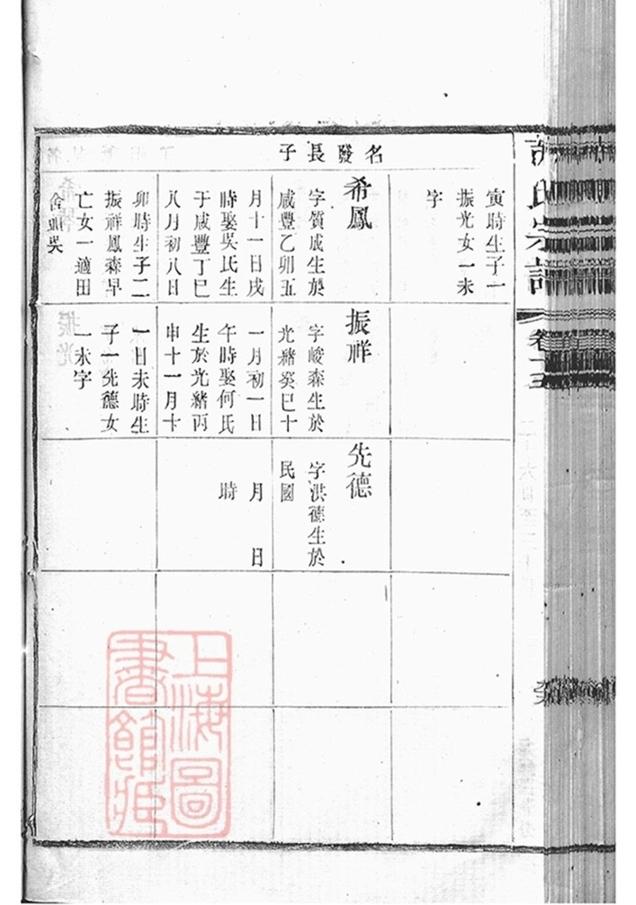 氏宗譜
卷十五
名發長子
寅時生子一
振光女一未
字
希鳳
字質成生於
咸豐乙卯五
月十一日戌
時娶吳氏生
于咸豐丁巳
八月初八日
卯時生子二
振祥鳳森早
亡女一適田
舍頭吳
振祥
字峻森生於
光緒癸巳十
一月初一日
午時娶何氏
生於光緒丙
申十一月十
一日未時生
子一先德女
一未字
先德
字洪德生於
民國
月 日
時
上海圖
書館藏